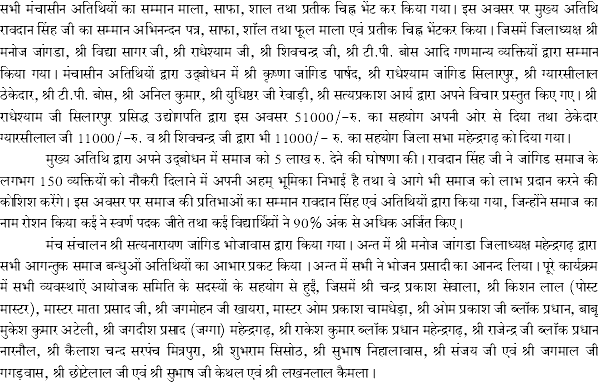 सभी मंचासीन अतिथियों का सम्मान माला, साफा, शाल तथा प्रतीक चिह्न भेंट कर किया गया। इस अवसर पर मुख्य अतिथि
रावदान सिंह जी का सम्मान अभिनन्दन पत्र, साफा, शॉल तथा फूल माला एवं प्रतीक चिह्न भेंटकर किया। जिसमें जिलाध्यक्ष श्री
मनोज जांगडा, श्री विद्या सागर जी, श्री राधेश्याम जी, श्री शिवचन्द्र जी, श्री टी.पी. बोस आदि गणमान्य व्यक्तियों द्वारा सम्मान
किया गया। मंचासीन अतिथियों द्वारा उद्बोधन में श्री कृष्णा जांगिड पार्षद, श्री राधेश्याम जांगिड सिलारपुर, श्री ग्यारसीलाल
ठेकेदार, श्री टी.पी. बोस, श्री अनिल कुमार, श्री युधिष्ठर जी रेवाड़ी, श्री सत्यप्रकाश आर्य द्वारा अपने विचार प्रस्तुत किए गए। श्री
राधेश्याम जी सिलारपुर प्रसिद्ध उद्योगपति द्वारा इस अवसर 51000/-रु. का सहयोग अपनी ओर से दिया तथा ठेकेदार
ग्यारसीलाल जी 11000/-रु. व श्री शिवचन्द्र जी द्वारा भी 11000/- रु. का सहयोग जिला सभा महेन्द्रगढ़ को दिया गया।
मुख्य अतिथि द्वारा अपने उद्बोधन में समाज को 5 लाख रु. देने की घोषणा की। रावदान सिंह जी ने जांगिड समाज के
लगभग 150 व्यक्तियों को नौकरी दिलाने में अपनी अहम् भूमिका निभाई है तथा वे आगे भी समाज को लाभ प्रदान करने की
कोशिश करेंगे। इस अवसर पर समाज की प्रतिभाओं का सम्मान रावदान सिंह एवं अतिथियों द्वारा किया गया, जिन्होंने समाज का
नाम रोशन किया कई ने स्वर्ण पदक जीते तथा कई विद्यार्थियों ने 90% अंक से अधिक अर्जित किए।
मंच संचालन श्री सत्यनारायण जांगिड भोजावास द्वारा किया गया। अन्त में श्री मनोज जांगडा जिलाध्यक्ष महेन्द्रगढ़ द्वारा
सभी आगन्तुक समाज बन्धुओं अतिथियों का आभार प्रकट किया ।अन्त में सभी ने भोजन प्रसादी का आनन्द लिया। पूरे कार्यक्रम
में सभी व्यवस्थाऐं आयोजक समिति के सदस्यों के सहयोग से हुई, जिसमें श्री चन्द्र प्रकाश सेवाला, श्री किशन लाल (पोस्ट
मास्टर), मास्टर माता प्रसाद जी, श्री जगमोहन जी खायरा, मास्टर ओम प्रकाश चामधेड़ा, श्री ओम प्रकाश जी ब्लॉक प्रधान, बाबू
मुकेश कुमार अटेली, श्री जगदीश प्रसाद (जग्गा) महेन्द्रगढ़, श्री राकेश कुमार ब्लॉक प्रधान महेन्द्रगढ़, श्री राजेन्द्र जी ब्लॉक प्रधान
नारनौल, श्री कैलाश चन्द सरपंच मित्रपुरा, श्री शुभराम सिसोठ, श्री सुभाष निहालावास, श्री संजय जी एवं श्री जगमाल जी
गगड़वास, श्री छोटेलाल जी एवं श्री सुभाष जी केथल एवं श्री लखनलाल कैमला।